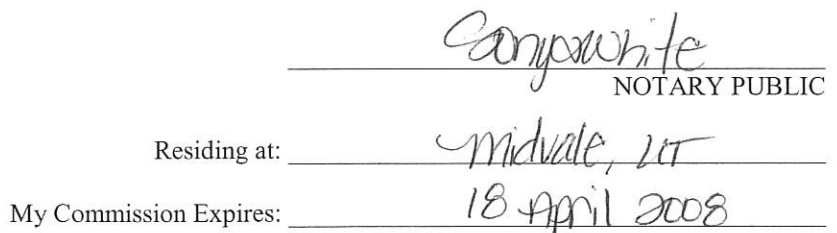 Sonya White
NOTARY PUBLIC
Residing at: Midvale, UT
My Commission Expires: 18 April 2008